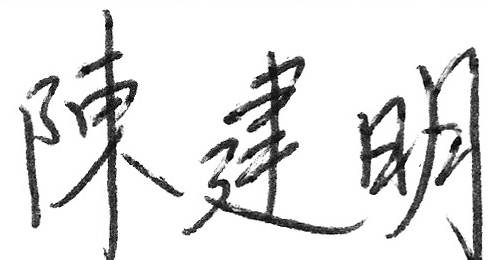 陳建明